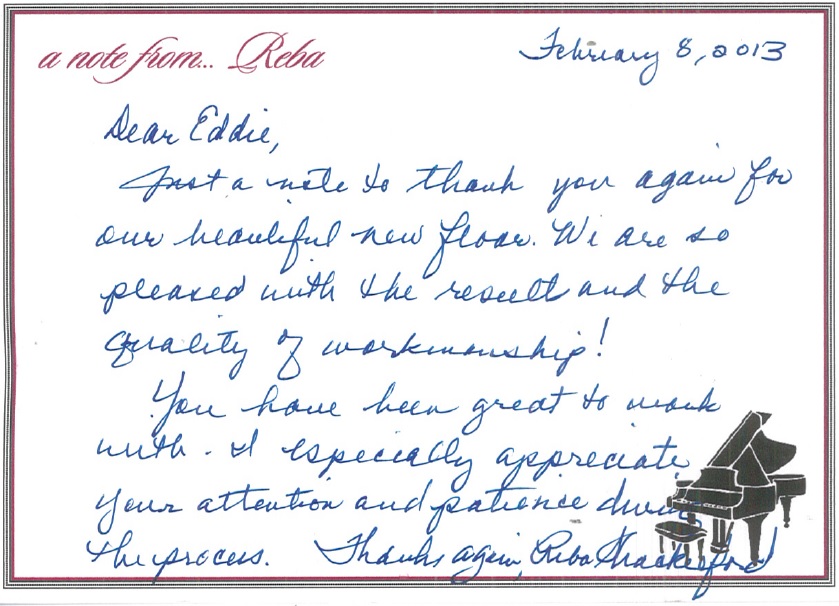 a note from... Reba
February 8, 2013
Dear Eddie,
Just a note to thank you again for
our beautiful new floor. We are so
pleased with the result and the
quality of workmanship!
You have been great to work
with. I especially appreciate
your attention and patience during
the process. Thanks again, Reba Shackelford